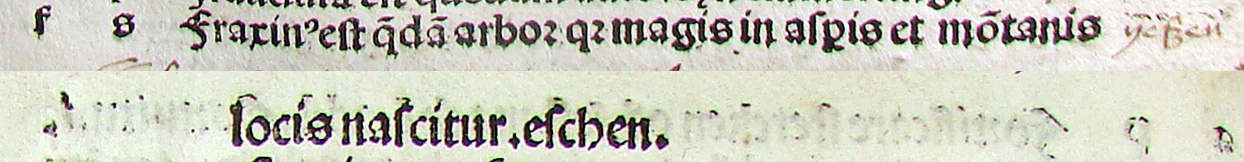 f s Fraxinꝰ est q̄dā arbor qꝛ magis in aſꝑis et mōtanis
locis naſcitur. eſchen.